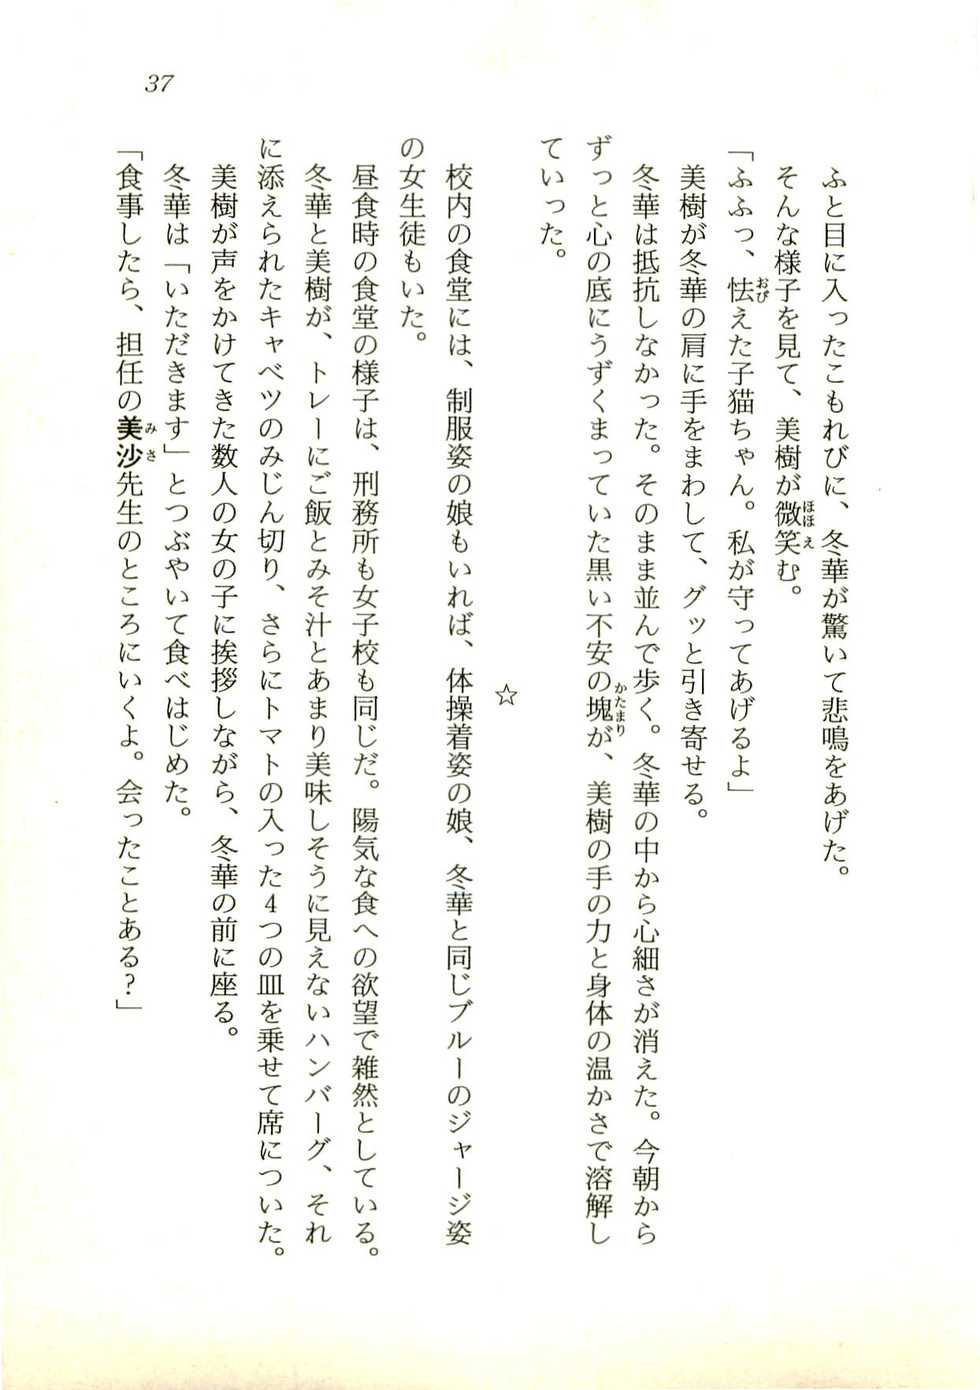 37
ふと目に入ったこもれびに、冬華が驚いて悲鳴をあげた。
そんな様子を見て、美樹が微笑む。
「ふふっ、怯えた子猫ちゃん。私が守ってあげるよ」
美樹が冬華の肩に手をまわして、グッと引き寄せる。
冬華は抵抗しなかった。そのまま並んで歩く。冬華の中から心細さが消えた。今朝から
ずっと心の底にうずくまっていた黒い不安の塊が、美樹の手の力と身体の温かさで溶解し
ていった。
☆
校内の食堂には、制服姿の娘もいれば、体操着姿の娘、冬華と同じブルーのジャージ姿
の女生徒もいた。
昼食時の食堂の様子は、刑務所も女子校も同じだ。陽気な食への欲望で雑然としている。
冬華と美樹が、トレーにご飯とみそ汁とあまり美味しそうに見えないハンバーグ、それ
に添えられたキャベツのみじん切り、さらにトマトの入った4つの皿を乗せて席についた。
美樹が声をかけてきた数人の女の子に挨拶しながら、冬華の前に座る。
冬華は「いただきます」とつぶやいて食べはじめた。
「食事したら、担任の美沙先生のところにいくよ。会ったことある?」